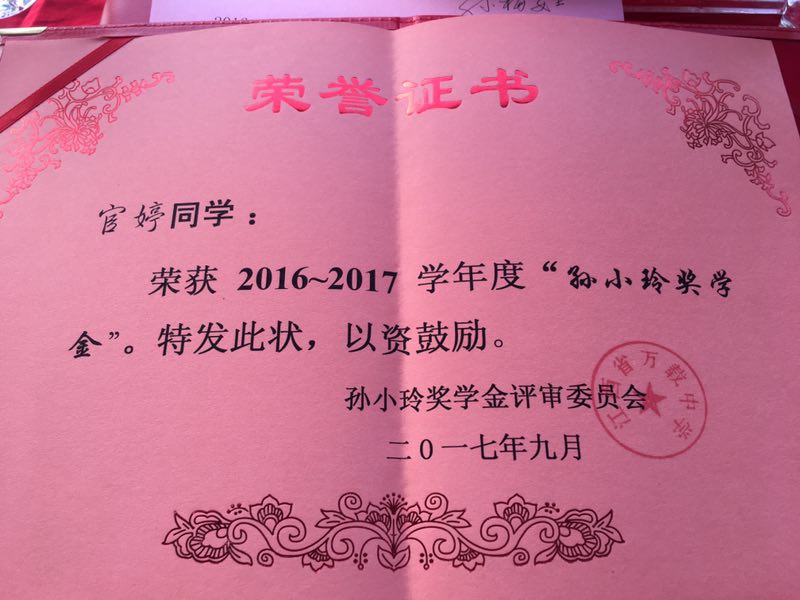 荣誉证书
官婷同学：
荣获 2016~2017 学年度“孙小玲奖学
金”。特发此状，以资鼓励。
孙小玲奖学金评审委员会
二0一七年九月
江西省万载中学